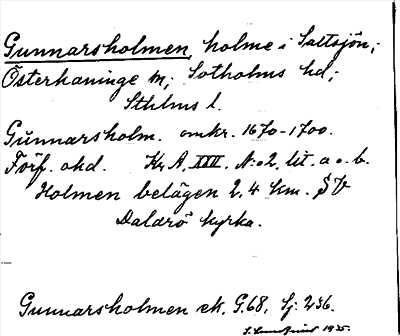 Gunnarsholmen, holme i Saltsjön,
Österhaninge sn; Sotholms hd;
Sthlms l.
Gunnarsholm. omkr. 1670-1700.
Förf. okd. Kr A. XXV. No 2. lit. a o. b.
Holmen belägen 2,4 km. SV
Dalarö kyrka.
Gunnarsholmen ek. G.68, Sj: 236.
1935.